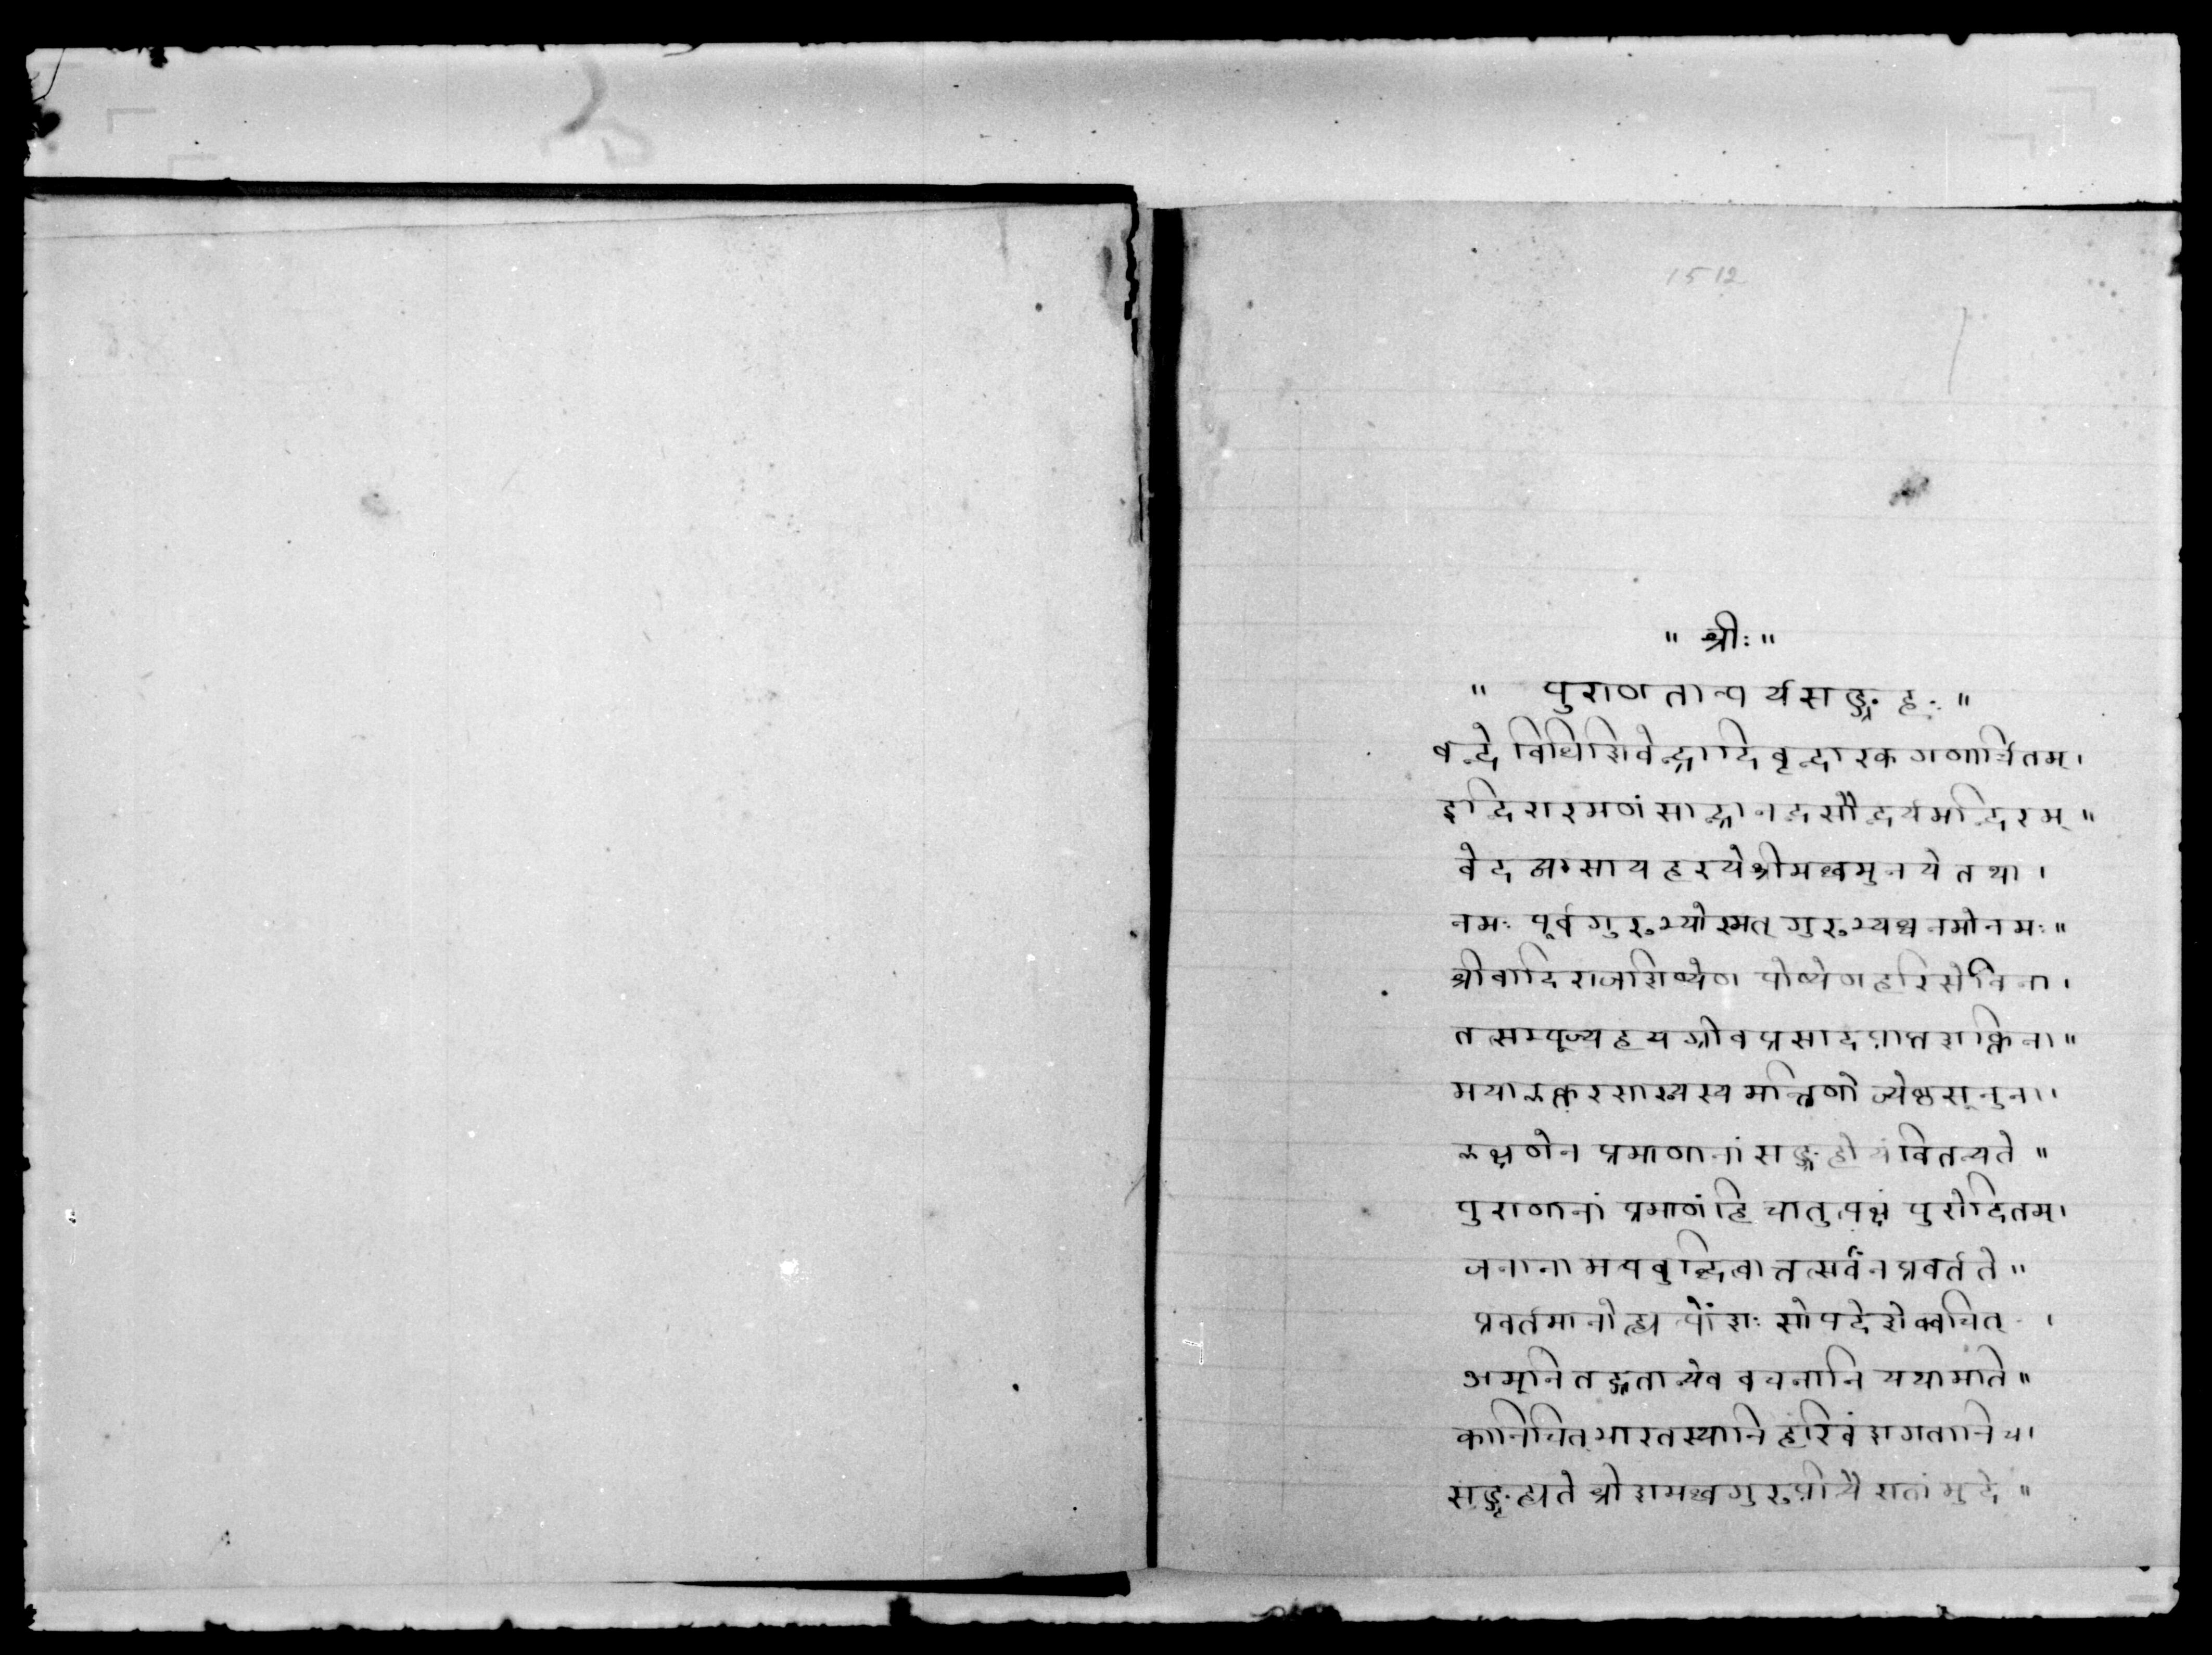 1512
" श्रीः "
" पुराणतात्पर्यसङ्ग्रहः "
वन्दे विधिशिवेन्द्रादिवृन्दारकगणार्चितम् ।
इन्दिरारमणं सान्द्रानन्दसौन्दर्यमन्दिरम् "
वेदव्यासाय हरये श्रीमध्वमुनये तथा ।
नमः पूर्वगुरुभ्योस्मत् गुरुभ्यश्च नमोनमः "
श्रीवादिराजशिष्येण पोष्येण हरिसेविना ।
तत्सम्पूज्यहयग्रीवप्रसादप्राप्तशक्तिना "
मया मन्त्रिणो ज्येष्ठसूनुना ।
लक्षणेन प्रमाणानां सङ्ग्रहोयं वितन्यते "
पुराणानां प्रमाणं हि चातुलक्षं पुरोदितम् ।
जनानामल्पबुद्धित्वात्तत्सर्वं न प्रवर्तते "
प्रवर्तमानोह्यल्पोंशः सोपदेशे क्वचित् ।
अमूनि तद्गतान्येव वचनानि यथामति "
कानिचित् भारतस्थानि हरिवंशगतानि च ।
सङ्गृह्यते श्रीशमध्वगुरुप्रीत्यै सतां मुदे "